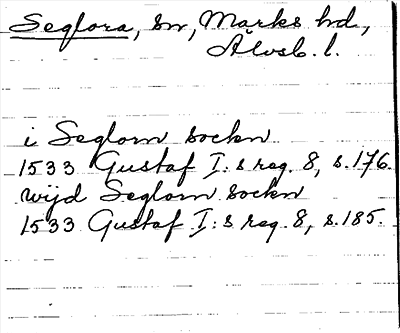 Seglora, sn, Marks hd,
Älvsb. l.
i Seglorn sockn
1533 Gustaf I:s reg. 8, s. 176.
wijd Seglorn sockn
1533 Gustaf I:s reg. 8, s. 185.